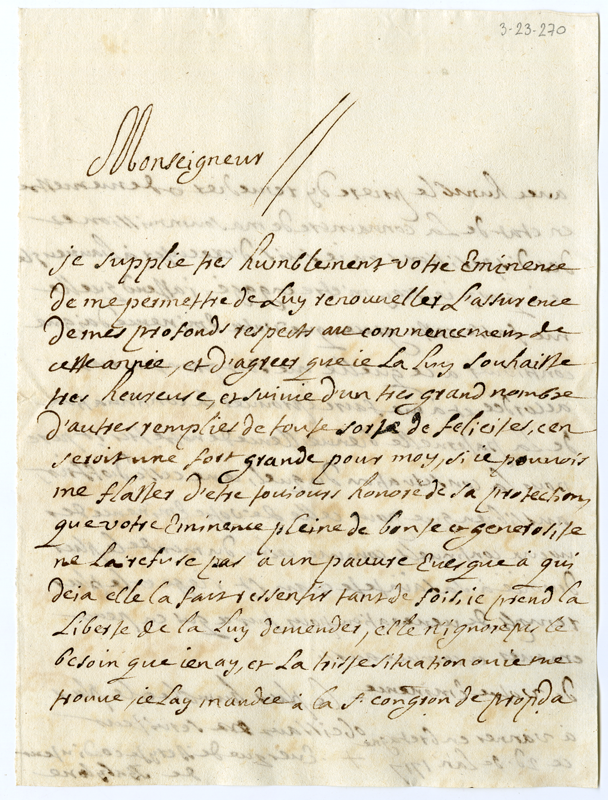 3-23-270
Monseigneur
je supplie tres humblement votre Eminence
de me permettre de Luy renouveller L'assurence
de mes profonds respects au commencement de
cette année, et d'agreer que ie La Luy souhaitte
tres heureuse, et suivie d'un tres grand nombre
d'autres remplies de toute sorte de felicites, c en
seroit une fort grande pour moy, si ie pouvois
me flatter d'etre toujours honoré de sa protection,
que votre Eminence pleine de bonte et generosite
ne La refuse pas à un pauvre Evesque à qui
deja elle la fait ressentir tant de fois, ie prend la
Liberte de la Luy demender, elle n'ignore pas le
besoin que ienay, et La triste situation ou ie me
trouve, ie Lay mandée à la st congron de propda